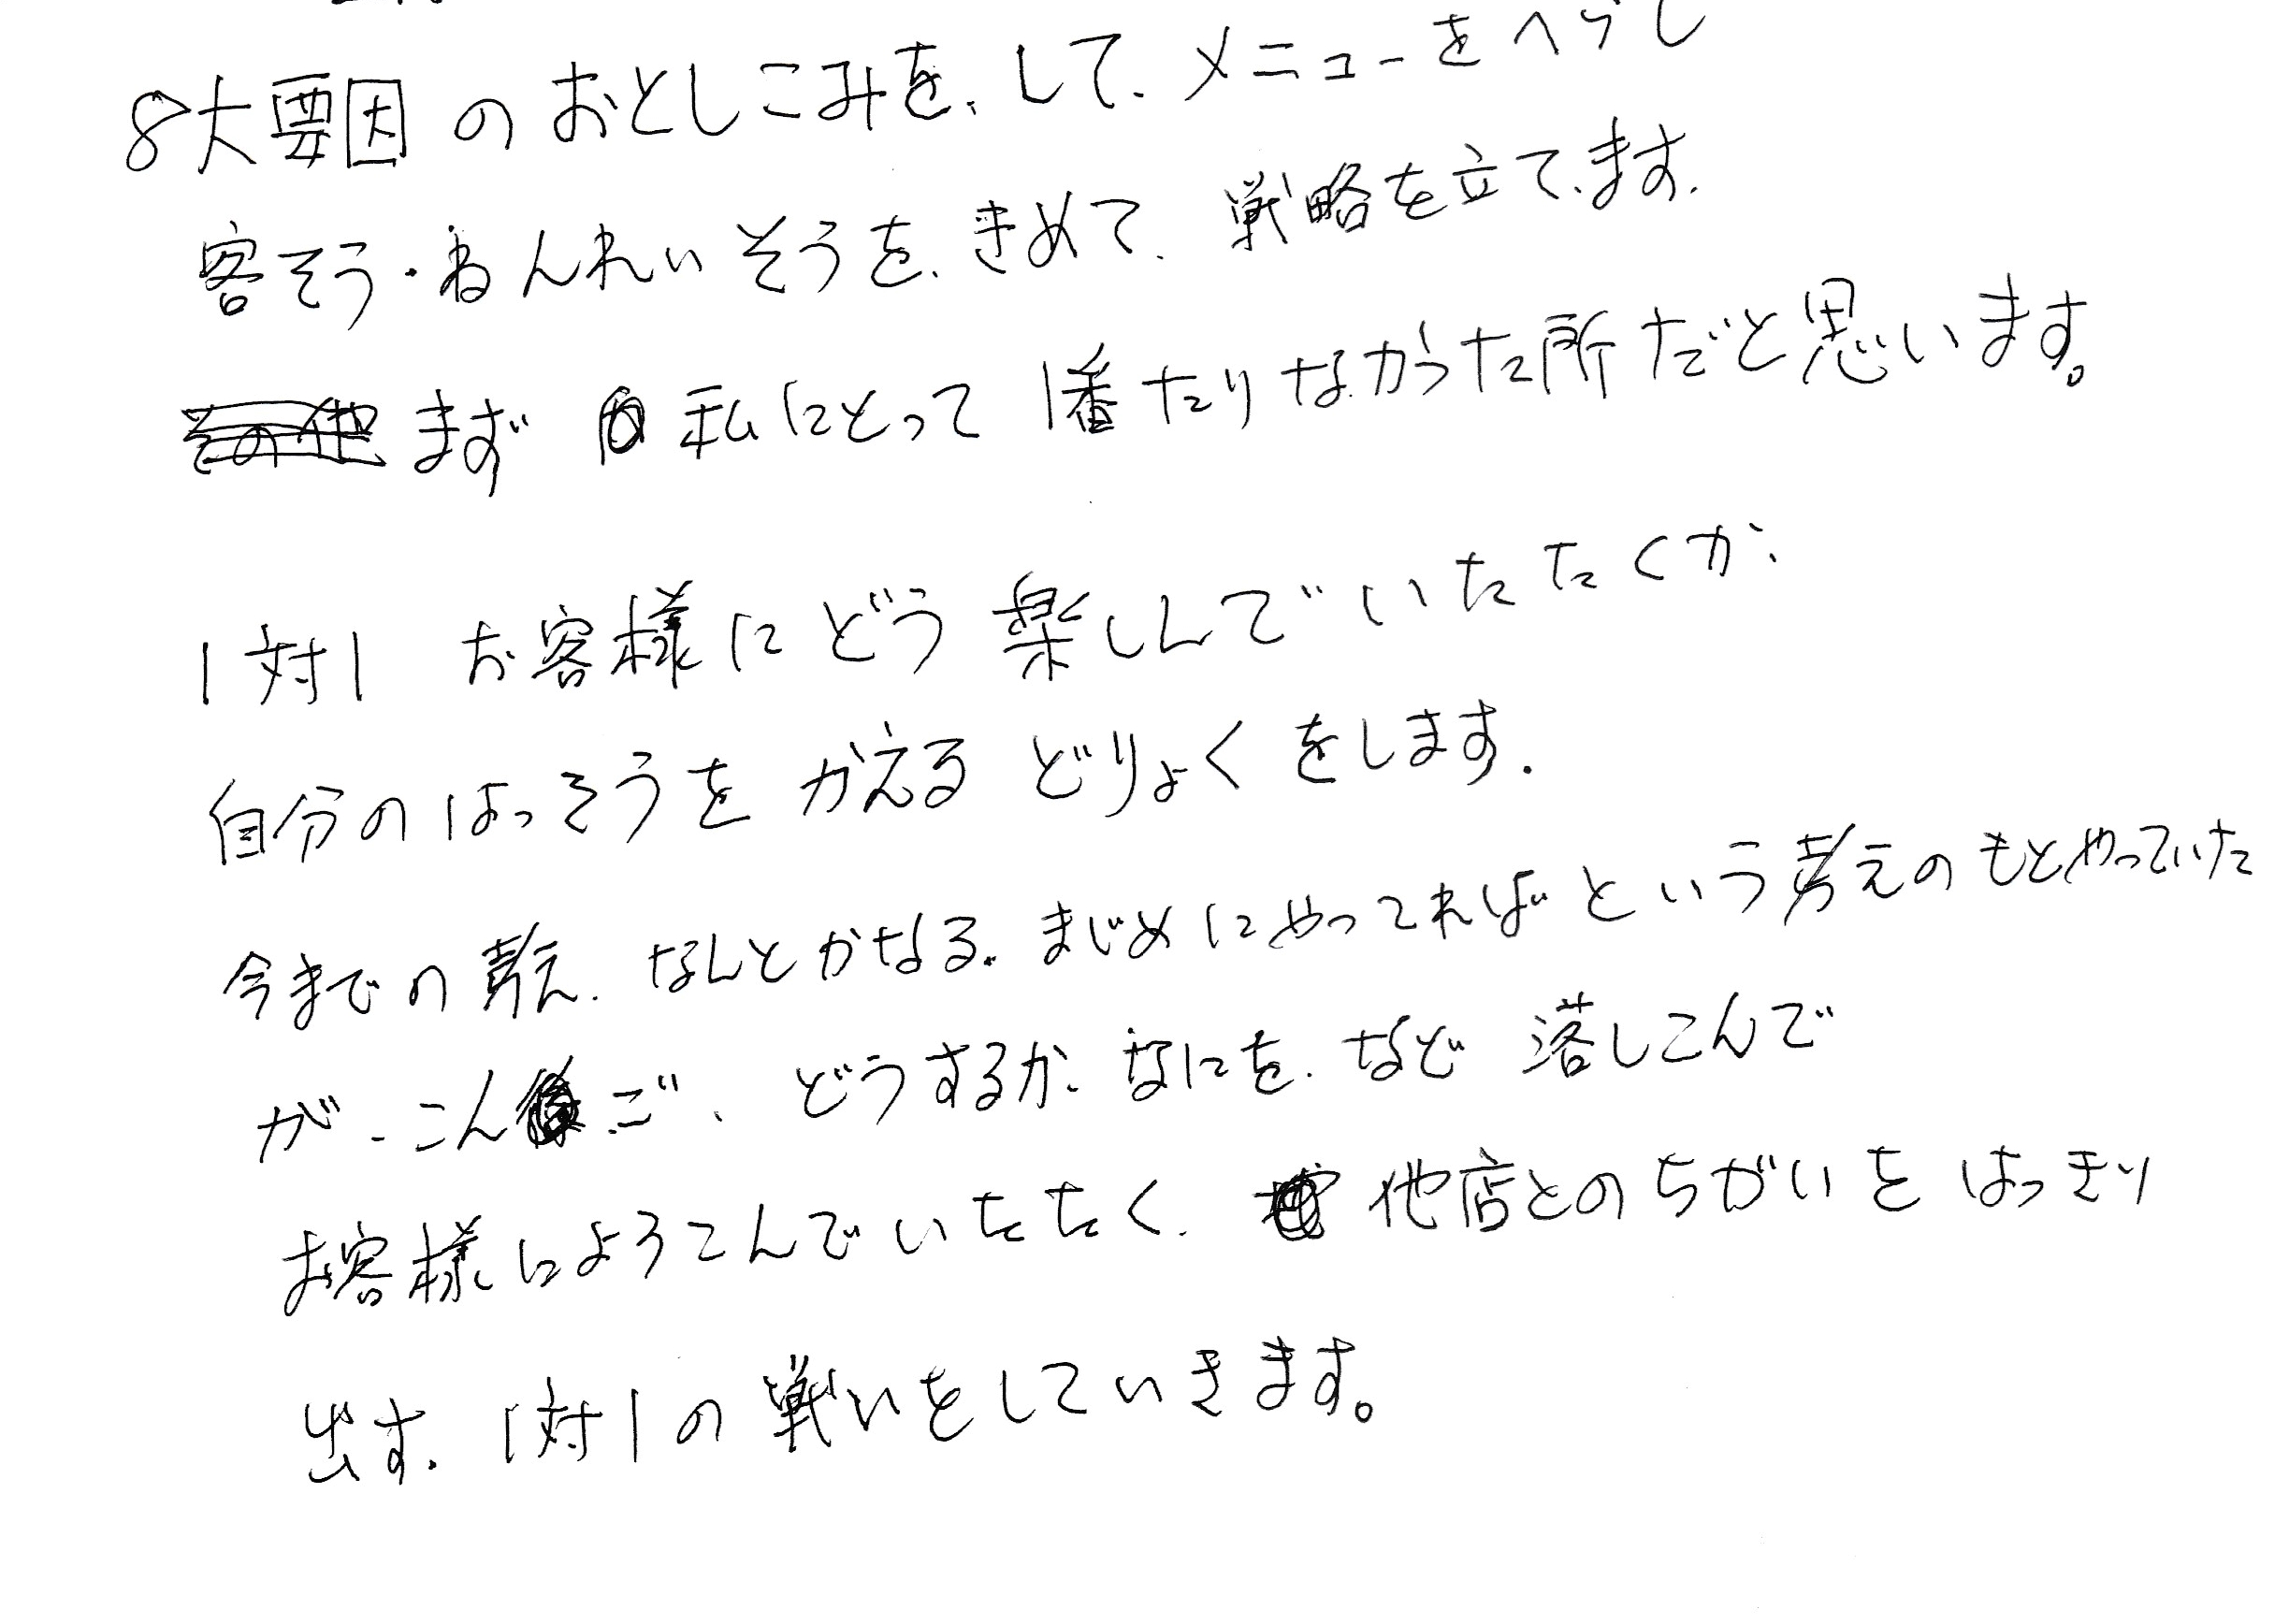 8大要因のおとしこみを、して、メニューをへらし
客そう・ねんれいそうを、きめて、戦略を立て、ます.
まず 私にとって 1番たりなかった所だと思います。
1対1 お客様にどう楽しんでいたたくか、
自分のはっそうをかえるどりょくをします.
今までの考え、なんとかなる. まじめにやってればという考えのもとやっていた
が、こんご、どうするか、なにを、など 落しこんで
お客様によろこんでいたたく、他店とのちがいをはっきり
出す. 1対1の戦いをしていきます。